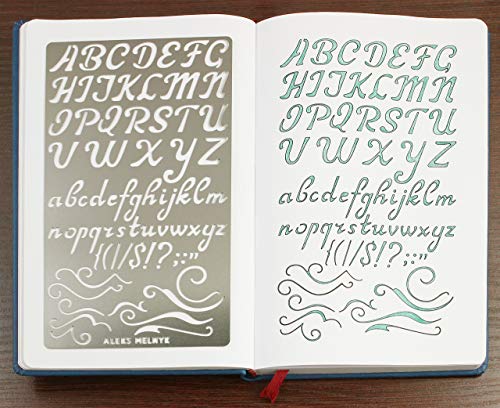 ABCDEFG
HIJKLMN
OPQRSTU
VWXYZ
abcdefghijklm
nopqrstuvwxyz
{(|/$!?,;:"
ALEKS MELNYK
ABCDEFG
HIJKLMN
OPQRSTU
VWXYZ
abcdefghijklm
nopqrstuvwxyz
{(|/$!?,;:"